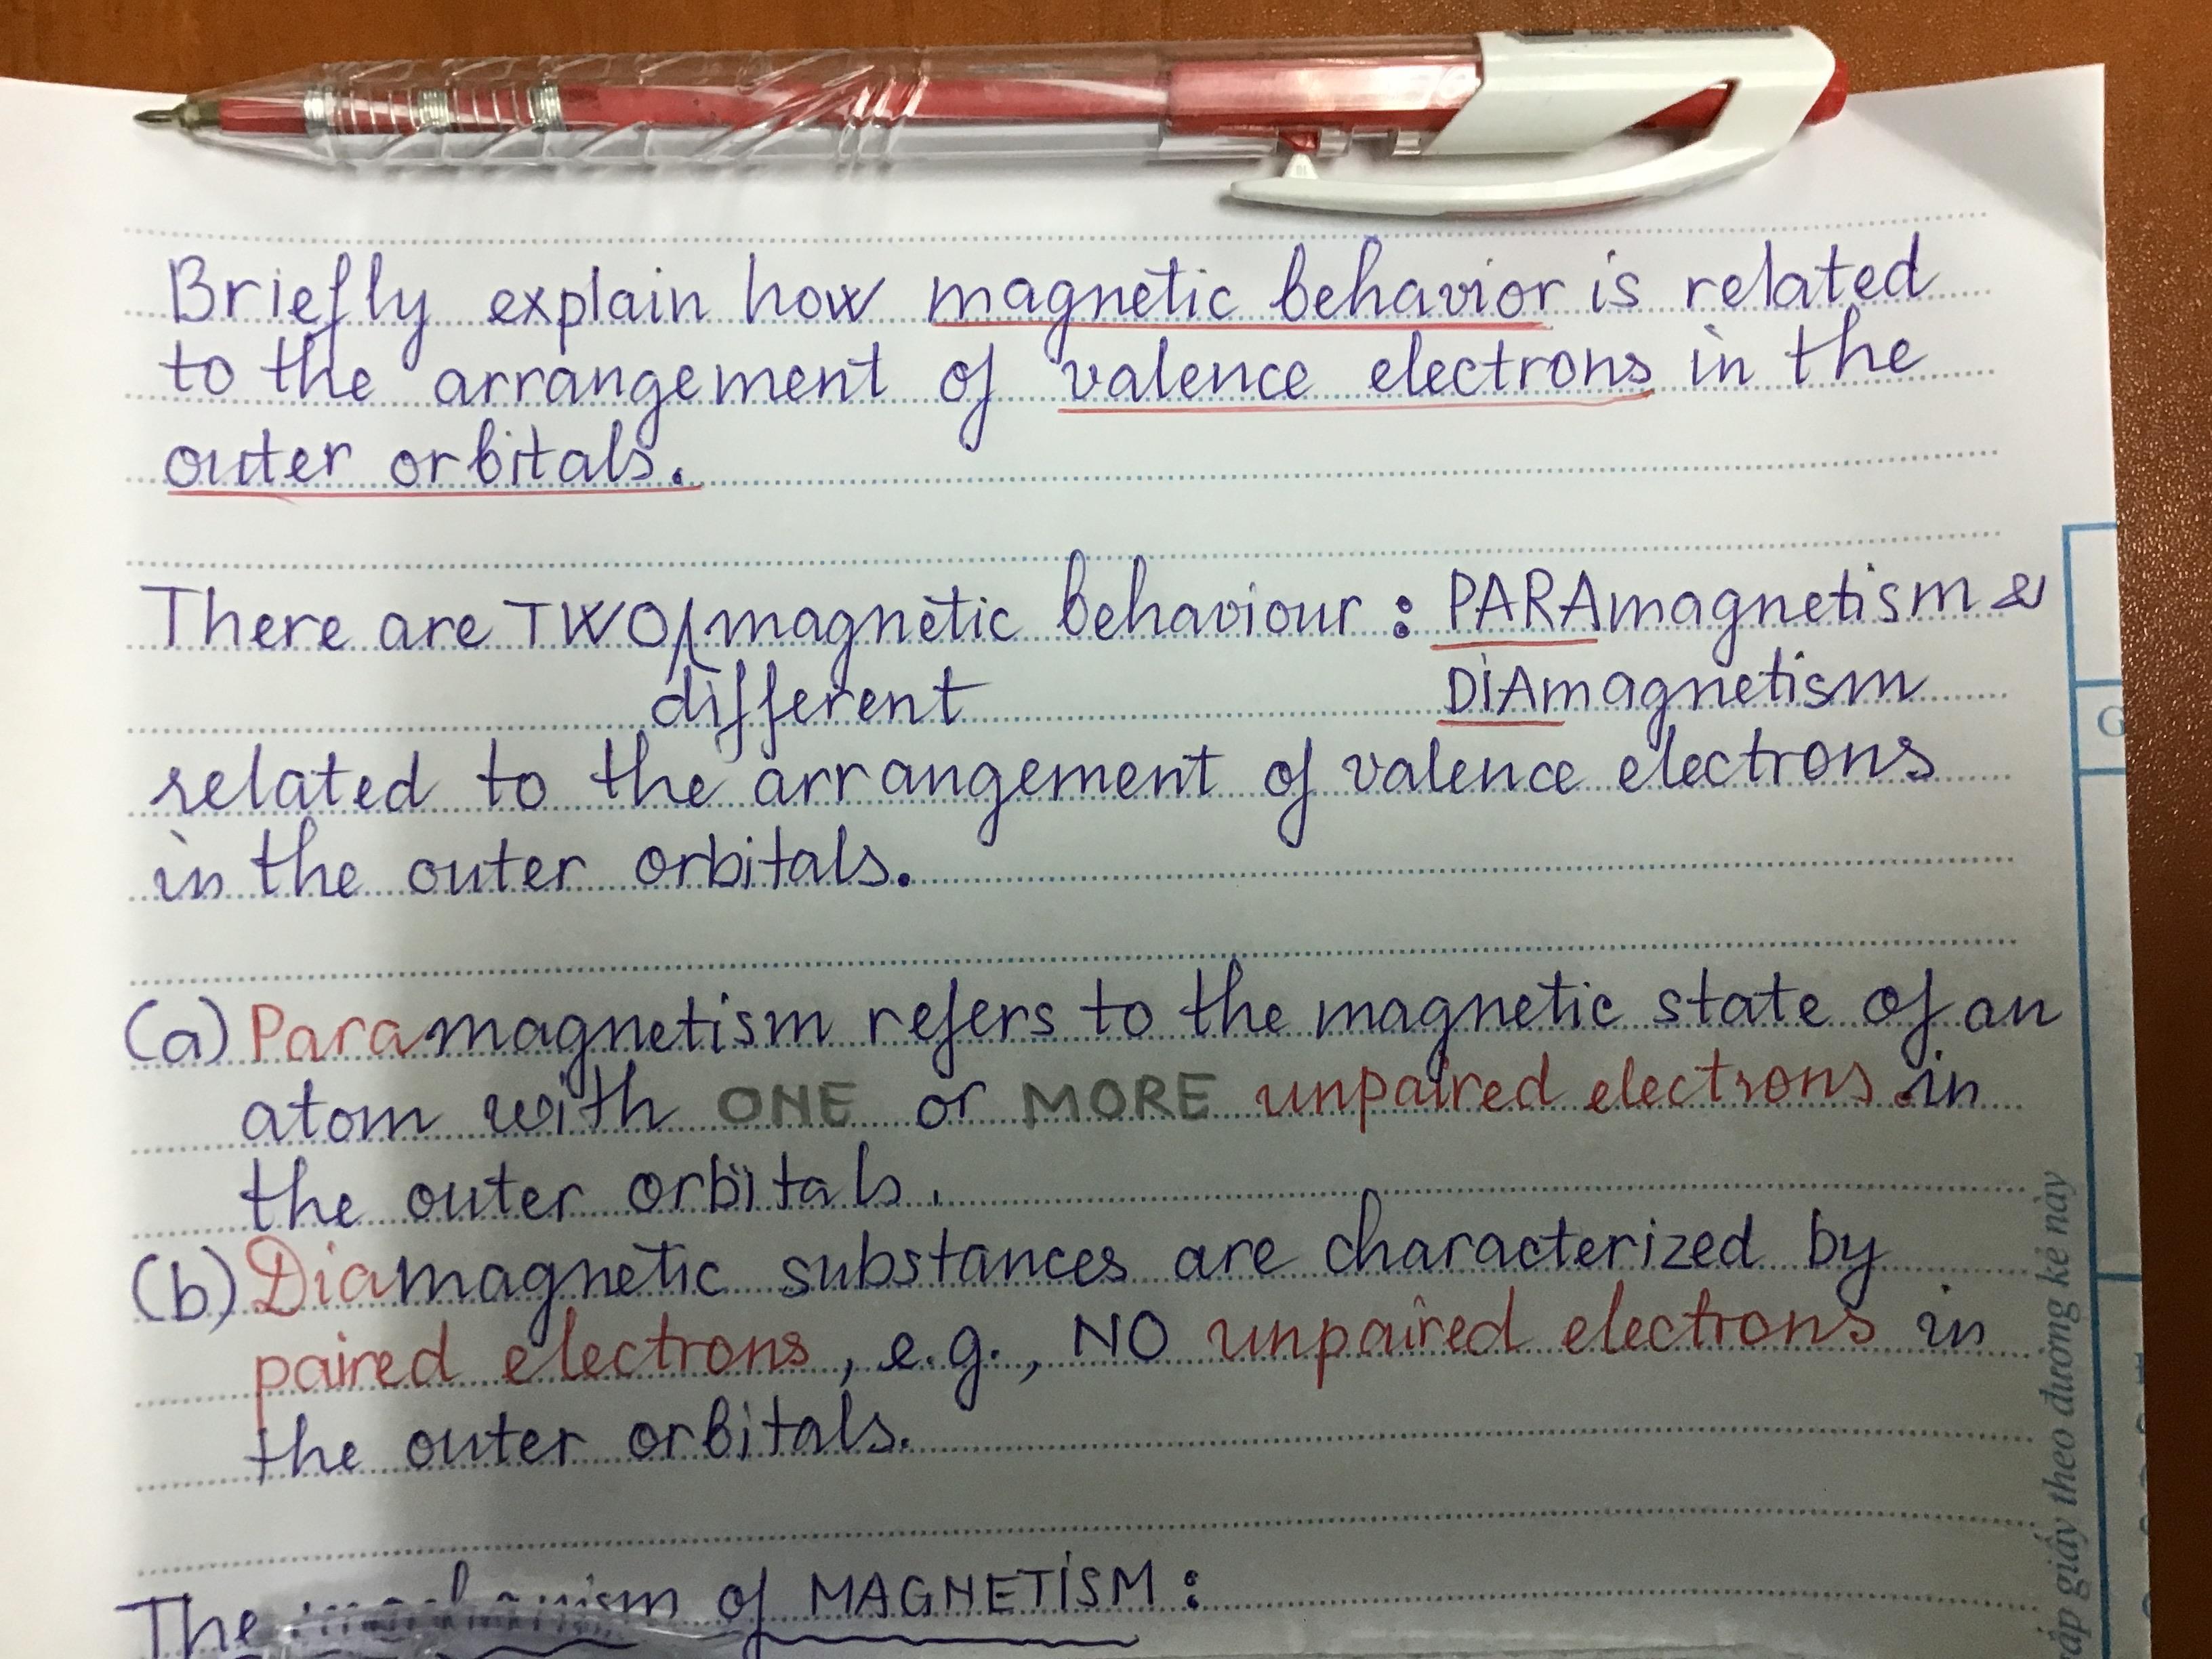 Briefly explain how magnetic behavior is related
to the arrangement of valence electrons in the
outer orbitals.
There are TWO magnetic behaviour : PARAmagnetism &
different DIAmagnetism
related to the arrangement of valence electrons
in the outer orbitals.
(a) Paramagnetism refers to the magnetic state of an
atom with ONE or MORE unpaired electrons in
the outer orbitals.
(b) Diamagnetic substances are characterized by
paired electrons, e.g., NO unpaired electrons in
the outer orbitals.
The mechanism of MAGNETISM :
G
gấp giấy theo đường kẻ này